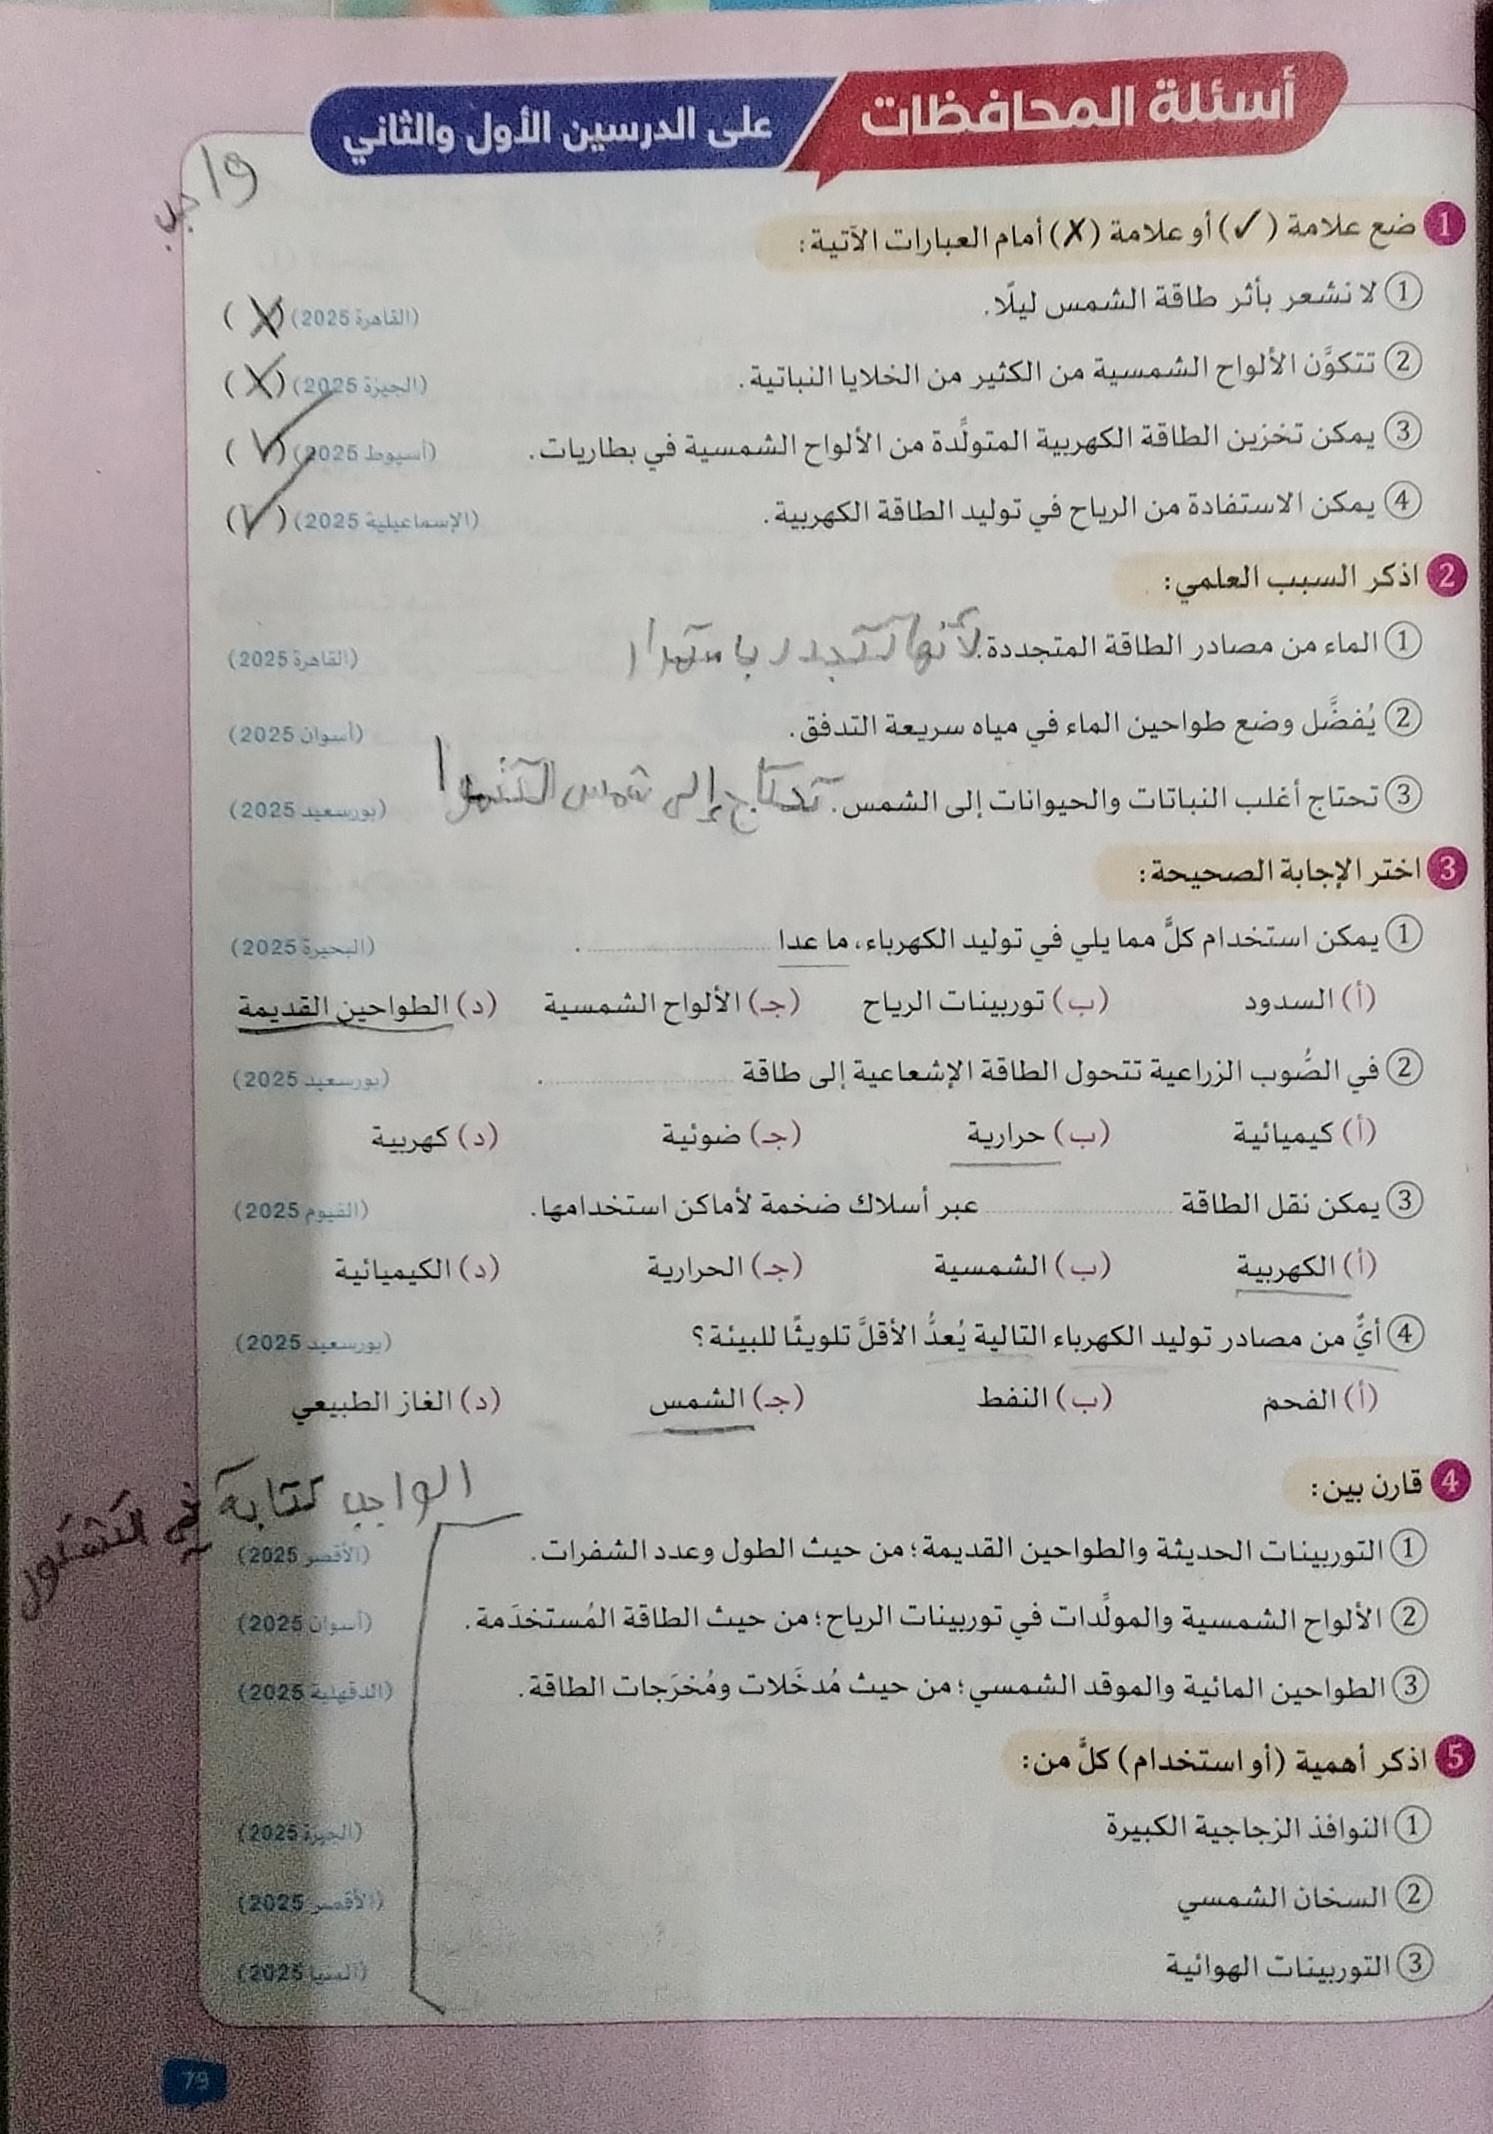 أسئلة المحافظات على الدرسين الأول والثاني
واجب
1 ضع علامة (✓) أو علامة (✗) أمام العبارات الآتية:
① لا نشعر بأثر طاقة الشمس ليلًا. (القاهرة 2025) (X)
② تتكوَّن الألواح الشمسية من الكثير من الخلايا النباتية. (الجيزة 2025) (X)
③ يمكن تخزين الطاقة الكهربية المتولِّدة من الألواح الشمسية في بطاريات. (أسيوط 2025) (✓)
④ يمكن الاستفادة من الرياح في توليد الطاقة الكهربية. (الإسماعيلية 2025) (✓)
2 اذكر السبب العلمي:
① الماء من مصادر الطاقة المتجددة. لأنها تتجدد (القاهرة 2025)
② يُفضَّل وضع طواحين الماء في مياه سريعة التدفق. (أسوان 2025)
③ تحتاج أغلب النباتات والحيوانات إلى الشمس. تحتاج إلى شمس (بورسعيد 2025)
3 اختر الإجابة الصحيحة:
① يمكن استخدام كلٍّ مما يلي في توليد الكهرباء، ما عدا .................... . (البحيرة 2025)
(أ) السدود (ب) توربينات الرياح (جـ) الألواح الشمسية (د) الطواحين القديمة
② في الصُّوب الزراعية تتحول الطاقة الإشعاعية إلى طاقة .................... . (بورسعيد 2025)
(أ) كيميائية (ب) حرارية (جـ) ضوئية (د) كهربية
③ يمكن نقل الطاقة .................... عبر أسلاك ضخمة لأماكن استخدامها. (الفيوم 2025)
(أ) الكهربية (ب) الشمسية (جـ) الحرارية (د) الكيميائية
④ أيٌّ من مصادر توليد الكهرباء التالية يُعدُّ الأقلَّ تلويثًا للبيئة؟ (بورسعيد 2025)
(أ) الفحم (ب) النفط (جـ) الشمس (د) الغاز الطبيعي
الواجب كتابة في
4 قارن بين:
① التوربينات الحديثة والطواحين القديمة؛ من حيث الطول وعدد الشفرات. (الأقصر 2025)
② الألواح الشمسية والمولِّدات في توربينات الرياح؛ من حيث الطاقة المُستخدَمة. (أسوان 2025)
③ الطواحين المائية والموقد الشمسي؛ من حيث مُدخَلات ومُخرَجات الطاقة. (الدقهلية 2025)
5 اذكر أهمية (أو استخدام) كلٍّ من:
① النوافذ الزجاجية الكبيرة (الجيزة 2025)
② السخان الشمسي (الأقصر 2025)
③ التوربينات الهوائية (المنيا 2025)
79